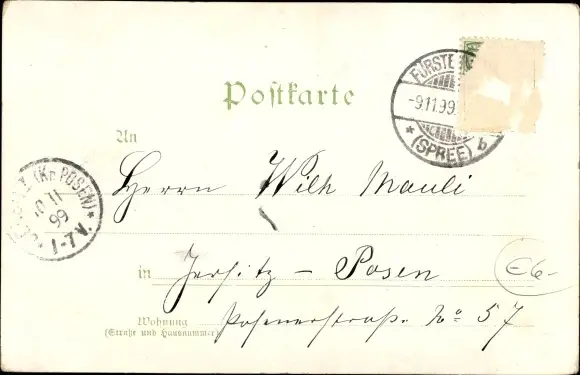 Postkarte
FÜRSTE
-9.11.99.
*(SPREE) b
An
Herrn Wilh Mauli
(Kr. POSEN)*
10 11
99
1-7 V.
in Jersitz – Posen
E6-
Wohnung Posenerstraße No 57
(Straße und Hausnummer)